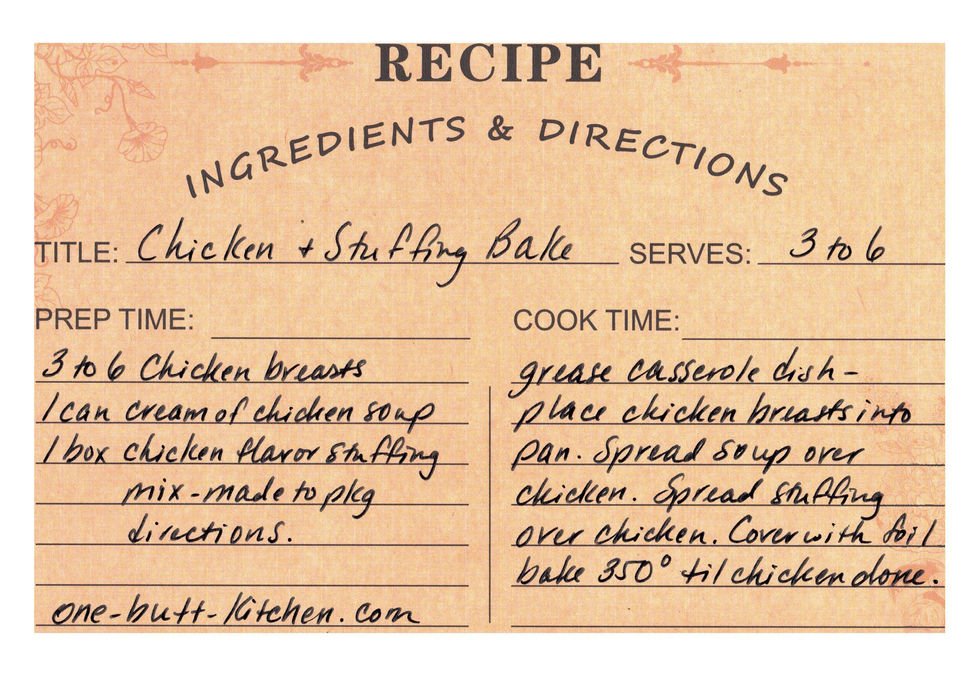 RECIPE
INGREDIENTS & DIRECTIONS
TITLE: Chicken + Stuffing Bake SERVES: 3 to 6
PREP TIME:
3 to 6 Chicken breasts
1 can cream of chicken soup
1 box chicken flavor stuffing
mix - made to pkg
directions.
one-butt-Kitchen.com
COOK TIME:
grease casserole dish -
place chicken breasts into
pan. Spread soup over
chicken. Spread stuffing
over chicken. Cover with foil
bake 350° til chicken done.